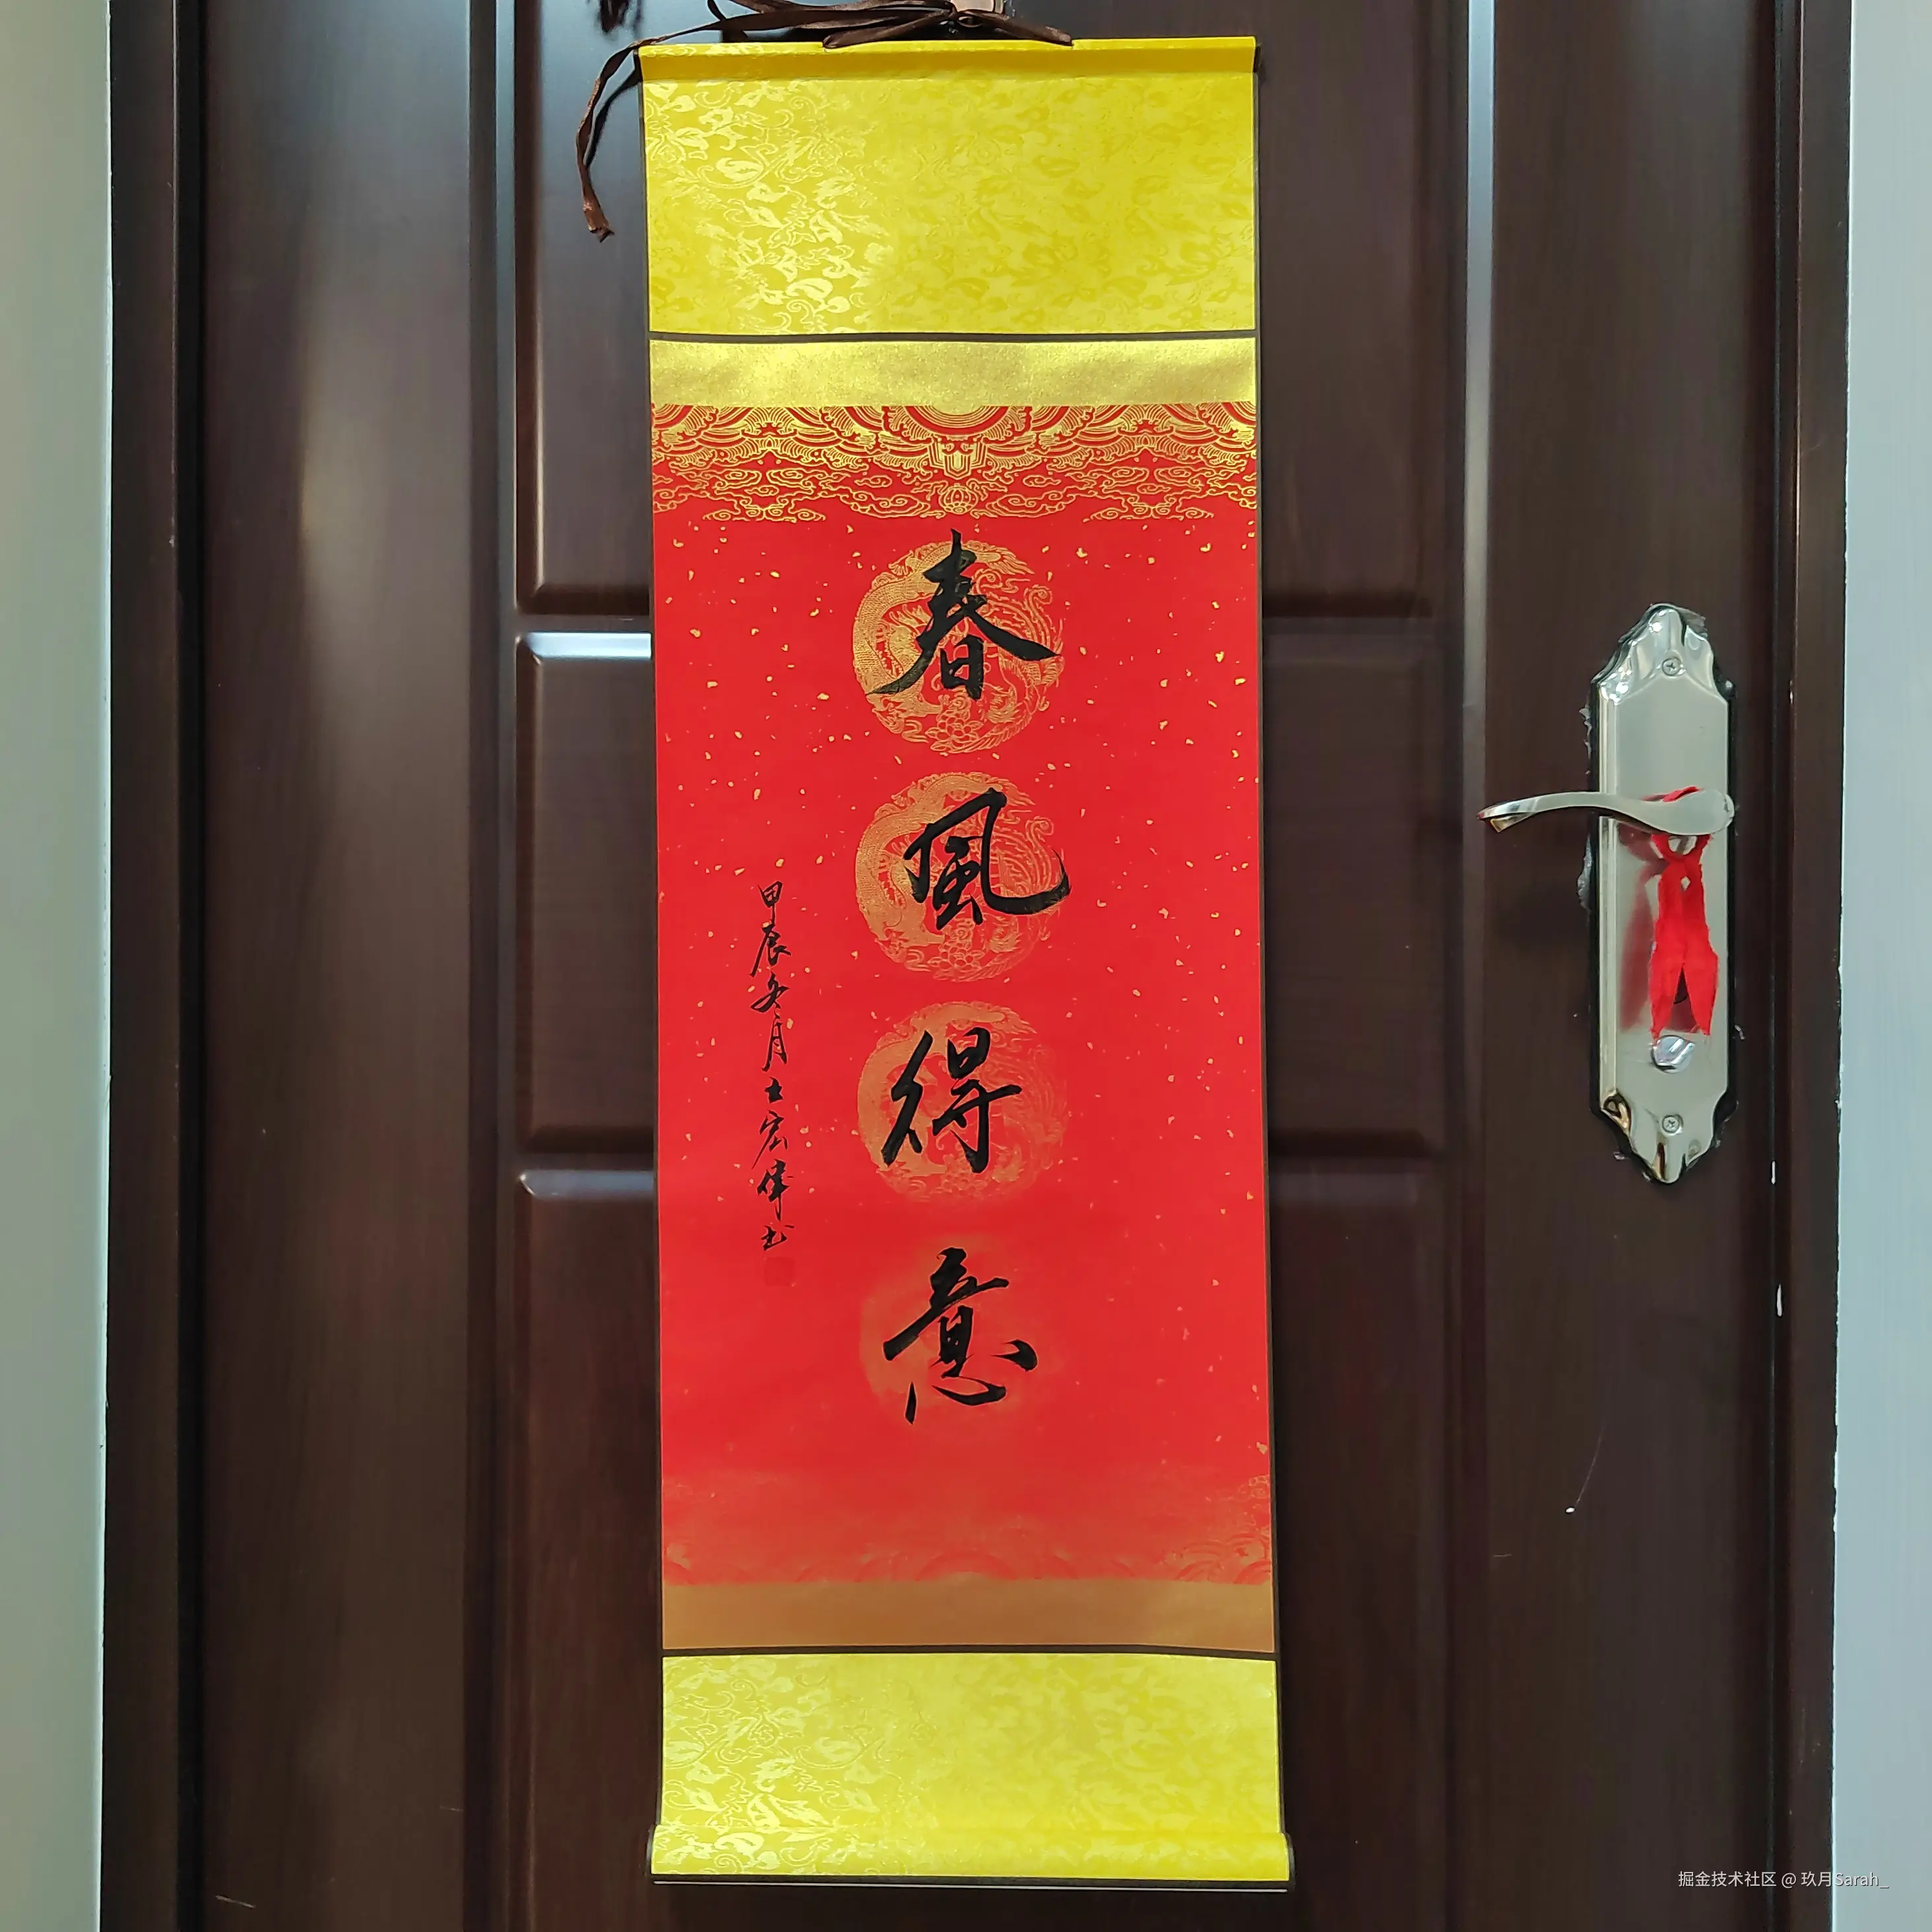 春風得意
甲辰冬月士宏偉书
掘金技术社区 @ 玖月Sarah_